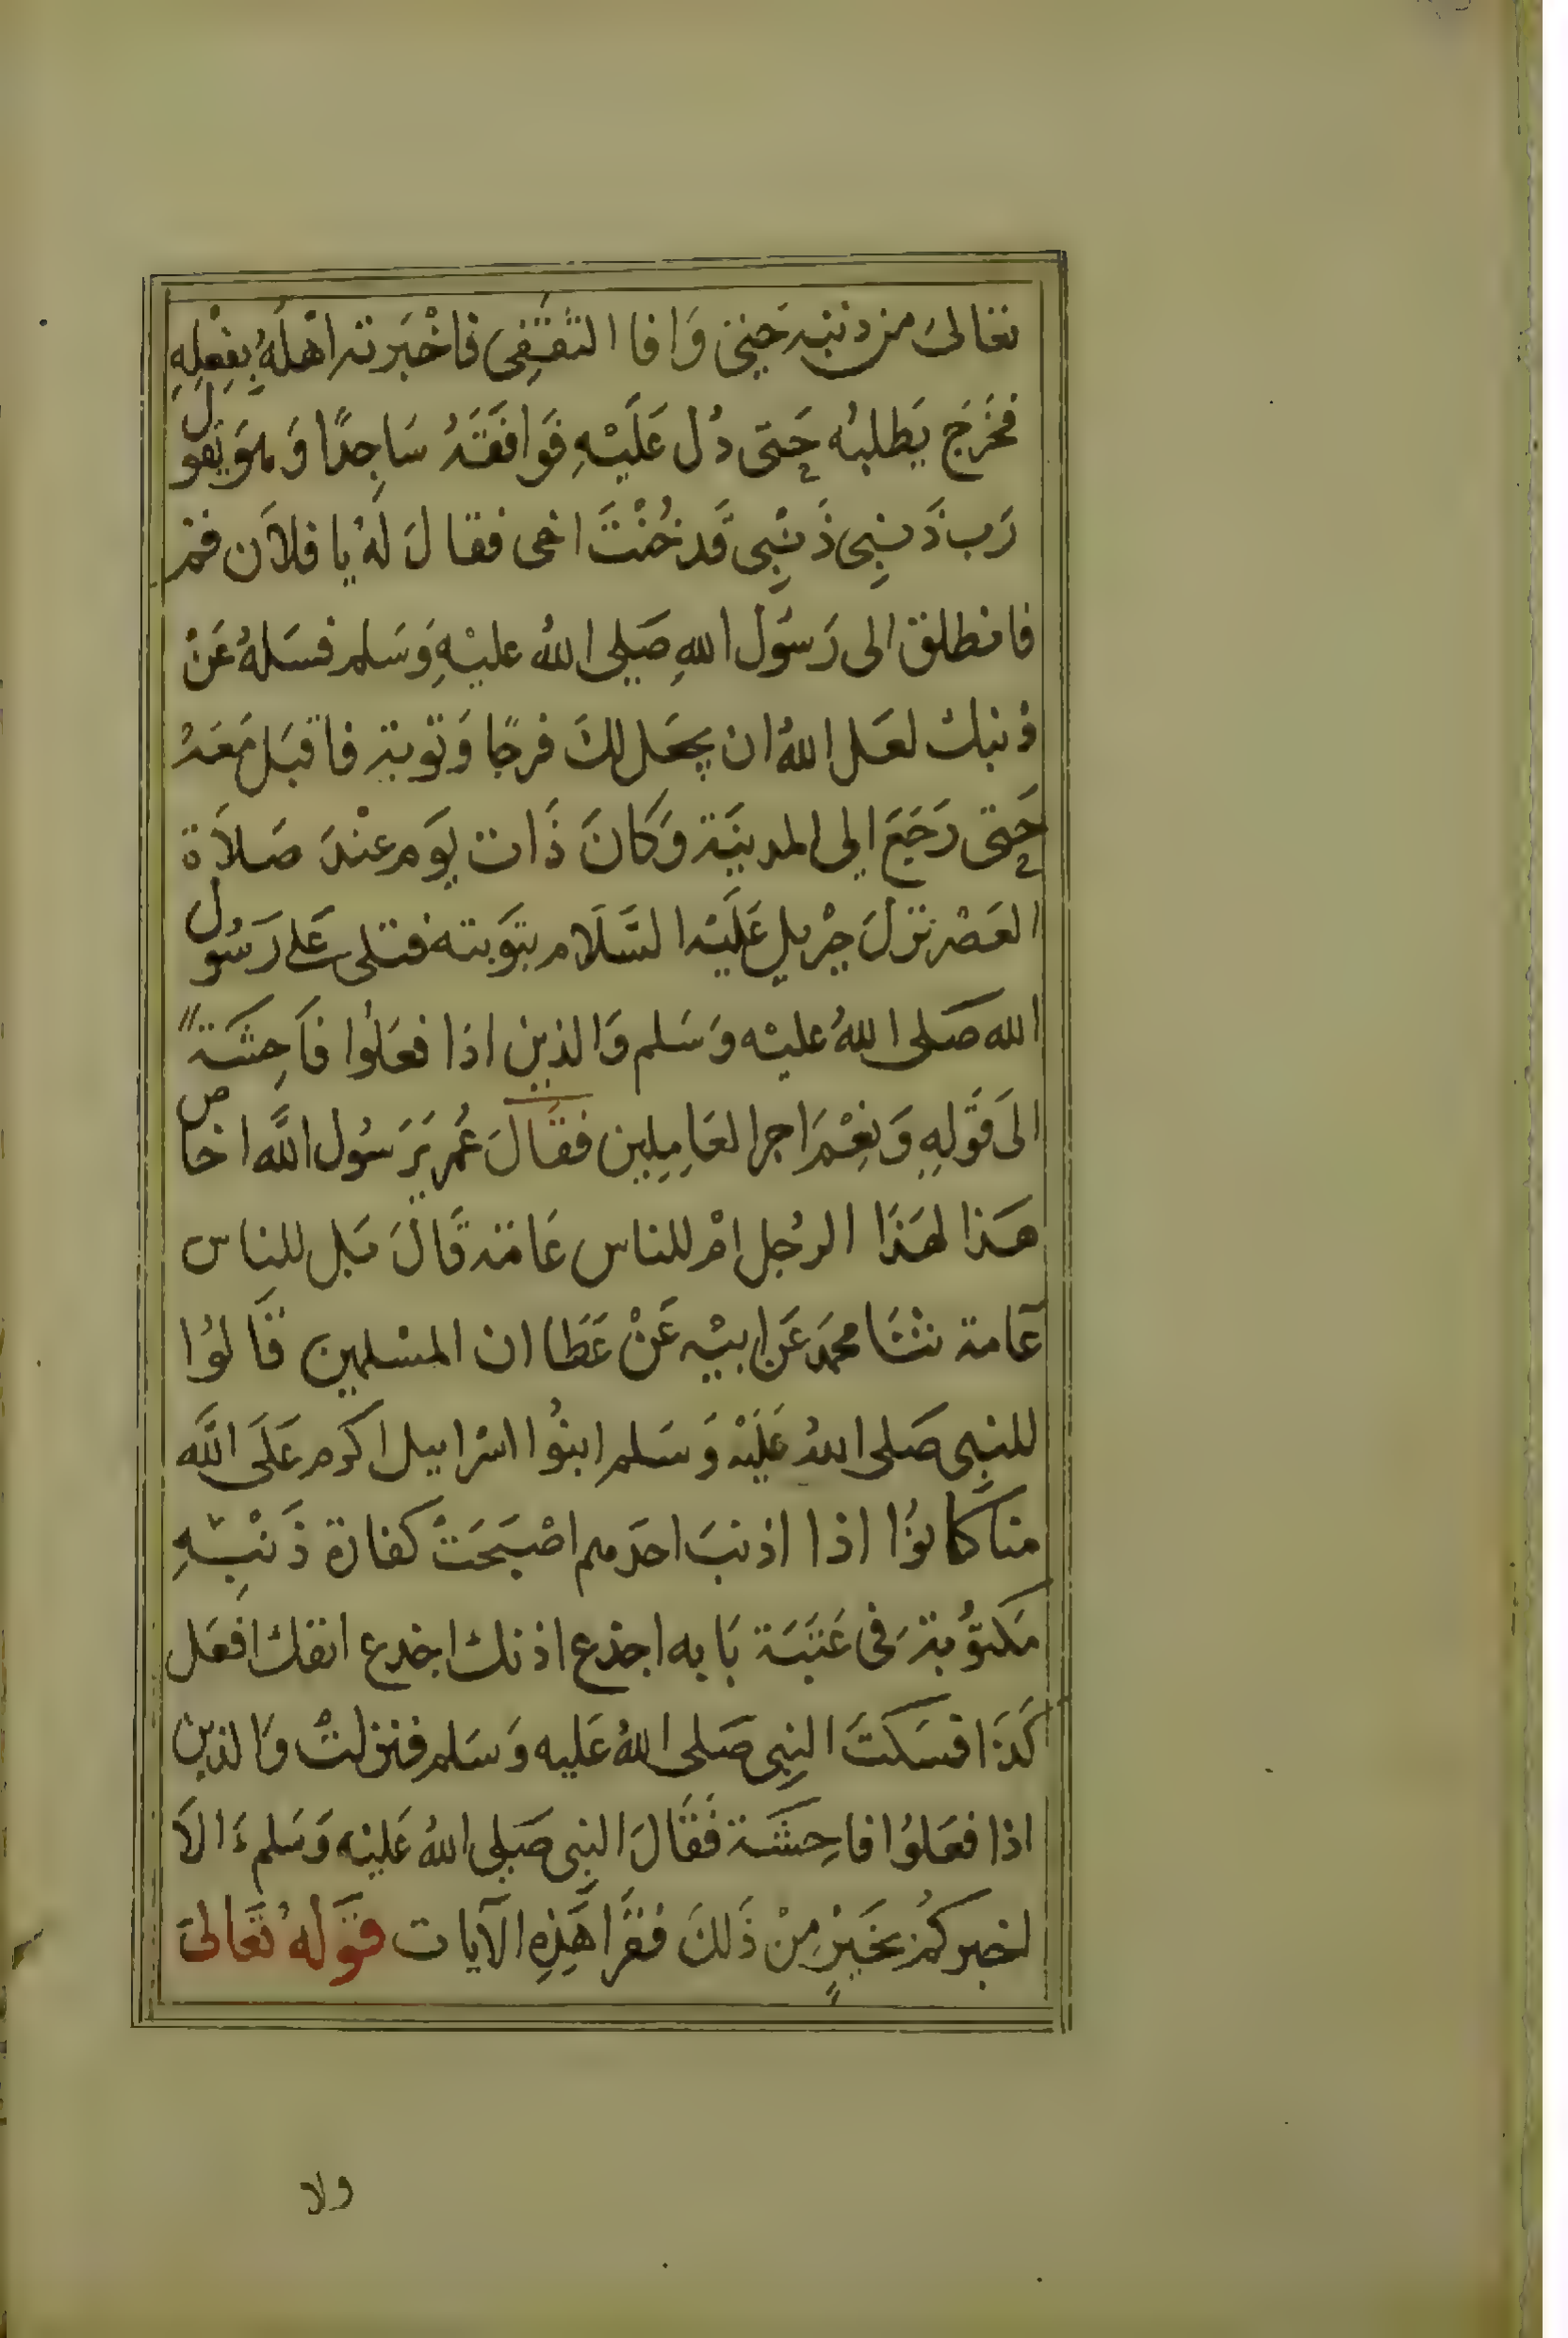 تعالىَ من ذنبه حَتى وَافا الثقَفِى فاخْبَرته اهْلهُ بِفِعْلِهِ
فخَرَج يَطلبهُ حَتى دُل عَلَيْهِ فوَافقَهُ سَاجِدًا وَهوَ يَقول
رَب ذَنبِى ذَنْبِى قد خُنْتَ اخى فقالَ لهُ يا فلاَن قم
فانطلق الى رَسوُل اللهِ صَلى اللهُ عليْهِ وَسَلم فسَلهُ عَنْ
ذنبك لعَل اللهُ ان يجعَل لكَ فرجًا وَتوبة فاقبَل مَعَهُ
حَتى رَجَعَ الى المدينَة وَكانَ ذَات يَوم عنْدَ صَلاَة
العَصْر نزلَ جبْريل عَلَيْه السَّلاَم بتَوبته فتلى عَلى رَسُول
الله صَلى اللهُ عليْه وَسَلم وَالذين اذا فعَلوُا فاَحِشَة
الىَ قَولِهِ وَنِعْمَ اجر العَامِلِين فقَالَ عُمر يَرَسُول اللَّه اخاص
هَذا لهَذَا الرجُل امْ للناس عَامة قالَ بَل للناس
عَامة ثنَا محمَد عَن ابيْه عَنْ عَطَا ان المسْلمين قاَلوُا
للنبِى صَلى اللهُ عَليْه وَسَلم ابنوُا اسْراييل اكرم عَلَى اللَّه
منا كانوُا اذا اذنبَ احَدهم اصْبَحَتْ كفارة ذَنْبِهِ
مَكتوُبة فى عَتبَة بَابه اجذع اذنك اجذع انفك افعَل
كَذَا فسَكتَ النبِى صَلى اللهُ عَليه وَسَلم فنزلتْ وَالذين
اذا فعَلوُا فاحِشَة فَقَالَ النبِى صَلى اللهُ عَليْه وَسَلم ءَالاَ
اخبركمُ بخَيْرٍ مِنْ ذَلكَ فقرَا هَذِهِ الآيات قوَلهُ تعَالىَ
ولا